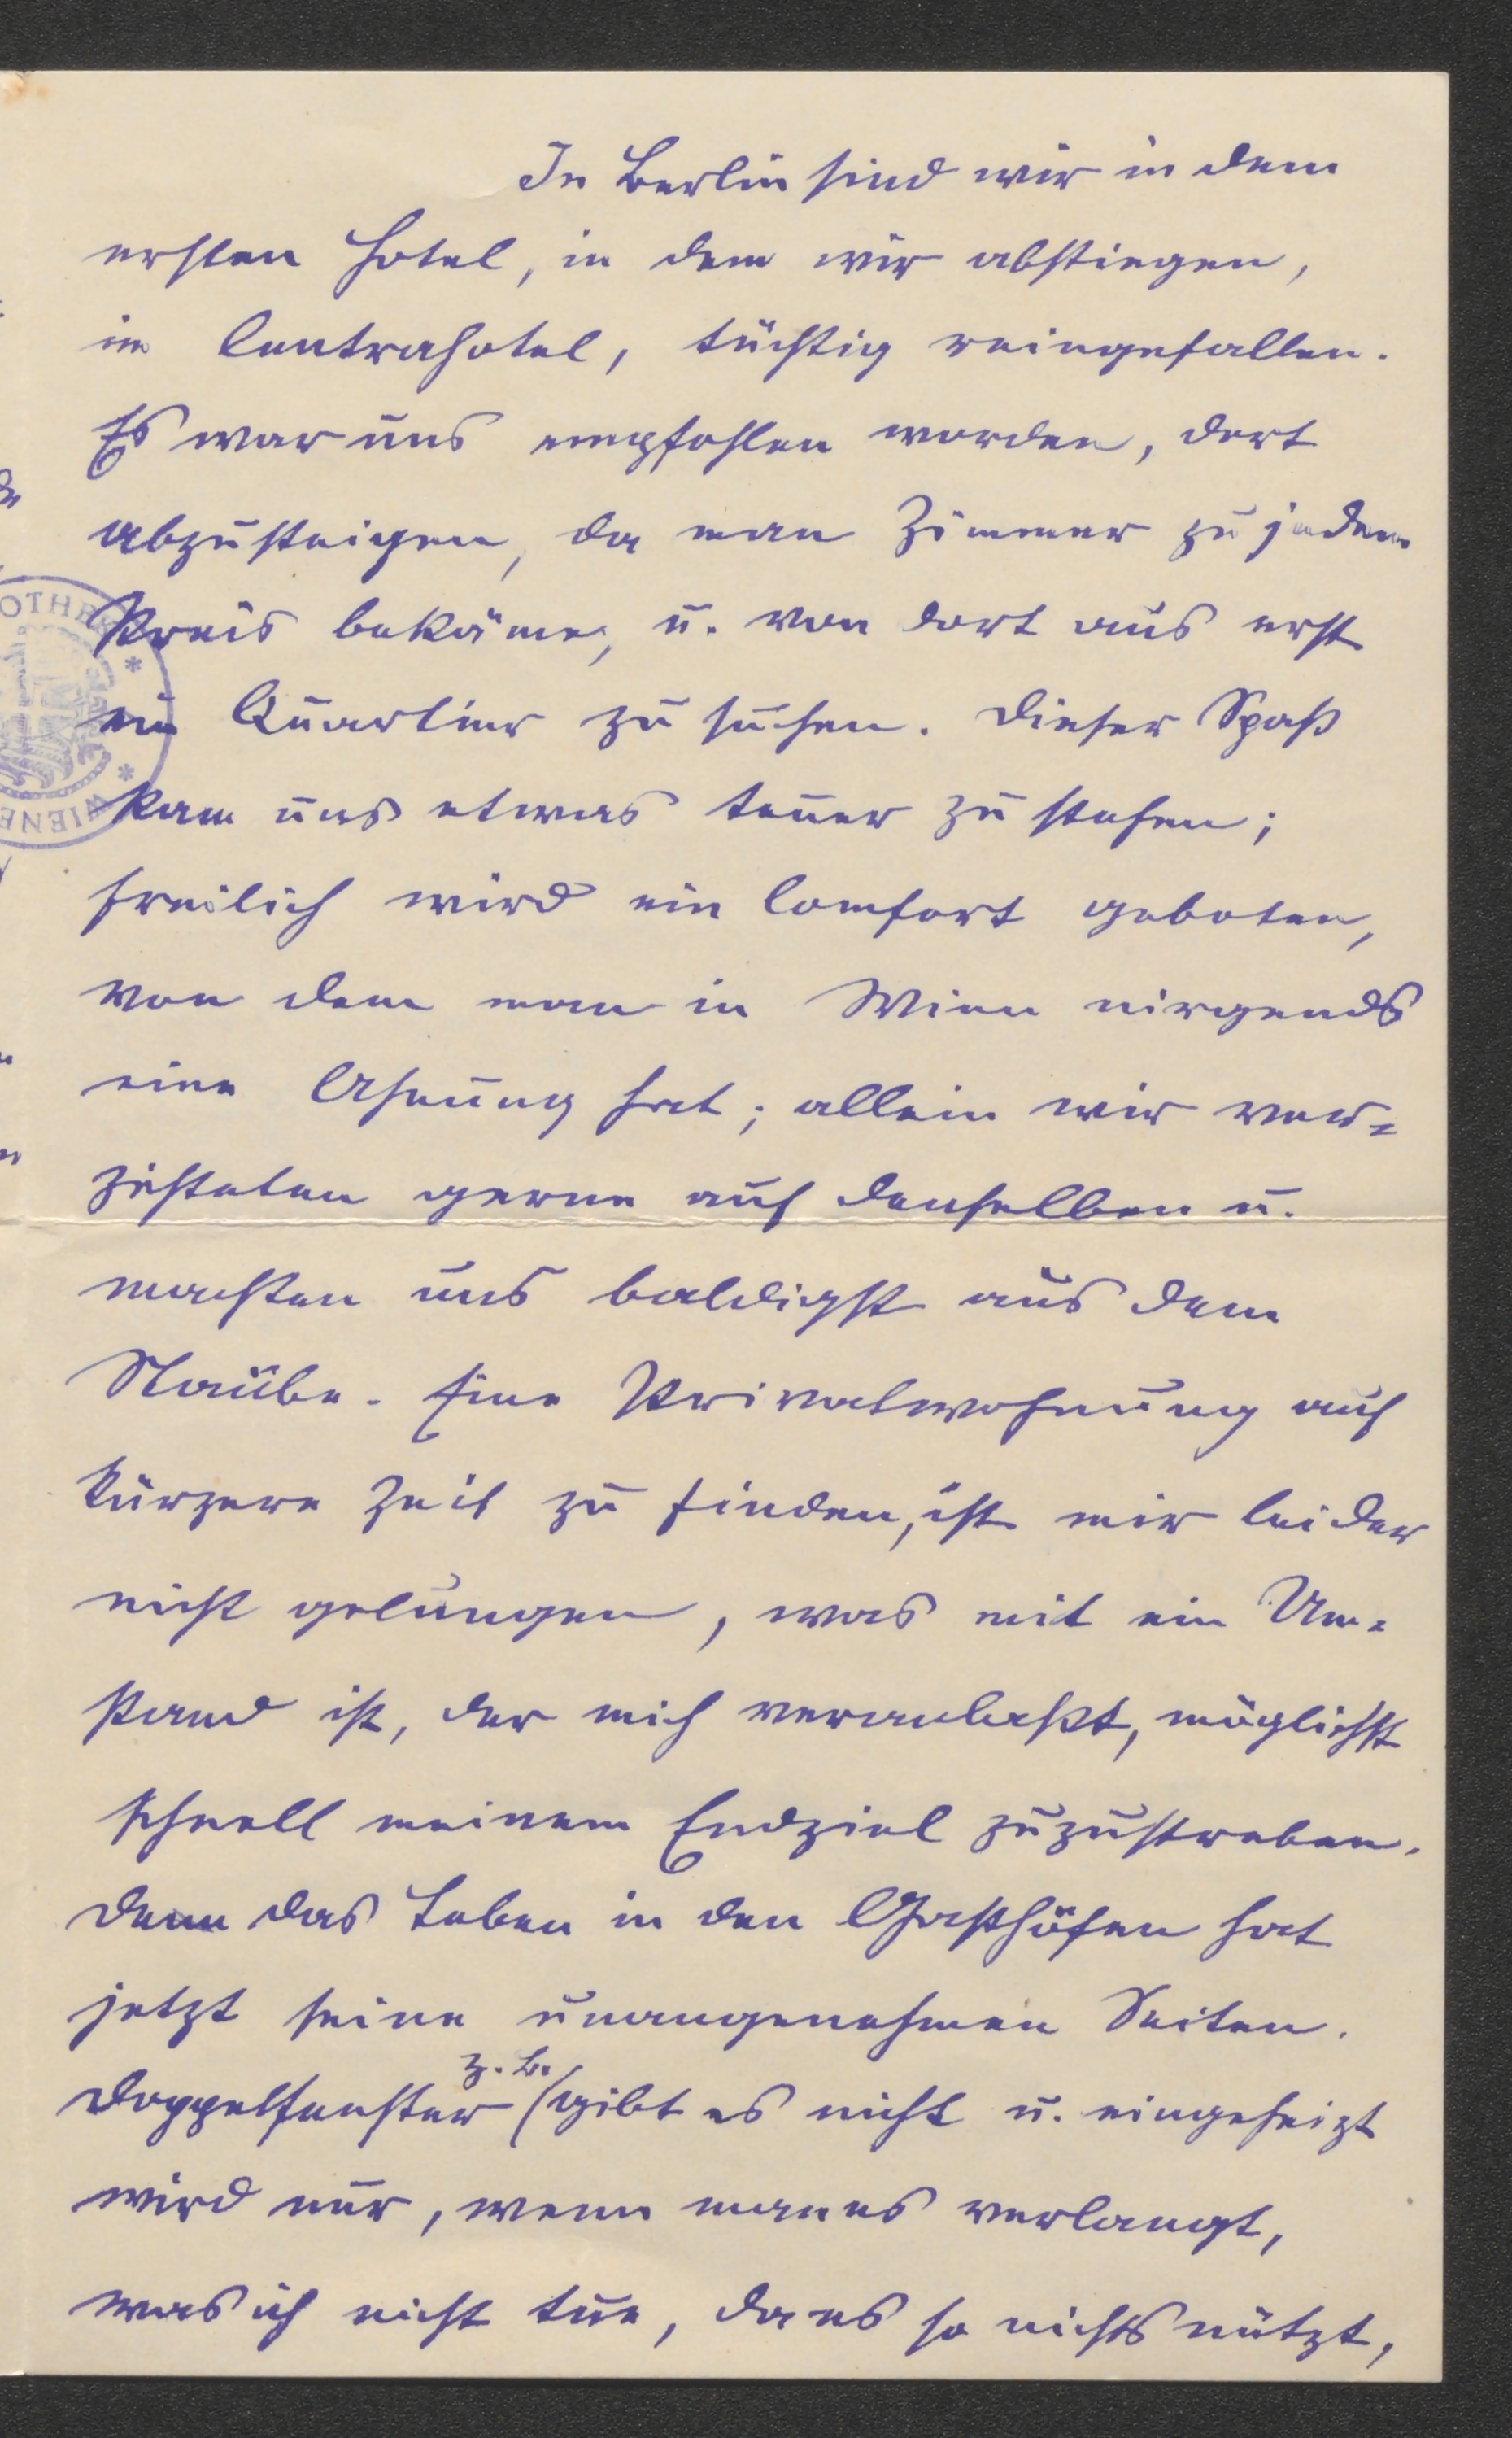 In Berlin sind wir in dem
ersten Hotel, in dem wir abstiegen,
im Centrahotel, tüchtig reingefallen.
Es war uns empfohlen worden, dort
abzusteigen, da man Zimmer zu jedem
Preis bekäme, u. von dort aus erst
ein Quartier zu suchen. Dieser Spaß
kam uns etwas teuer zu stehen;
freilich wird ein Comfort geboten,
von dem man in Wien nirgends
eine Ahnung hat; allein wir ver-
zichteten gerne auf denselben u.
machten uns baldigst aus dem
Staube. Eine Privatwohnung auf
kürzere Zeit zu finden, ist mir leider
nicht gelungen, was mit ein Um-
stand ist, der mich veranlaßt, möglichst
schnell meinem Endziel zuzustreben.
Denn das Leben in den Gasthöfen hat
jetzt seine unangenehmen Seiten.
z. B.
Doppelfenster gibt es nicht u. eingeheizt
wird nur, wenn man es verlangt,
was ich nicht tue, da es so nichts nützt,
OTHE
WIENE